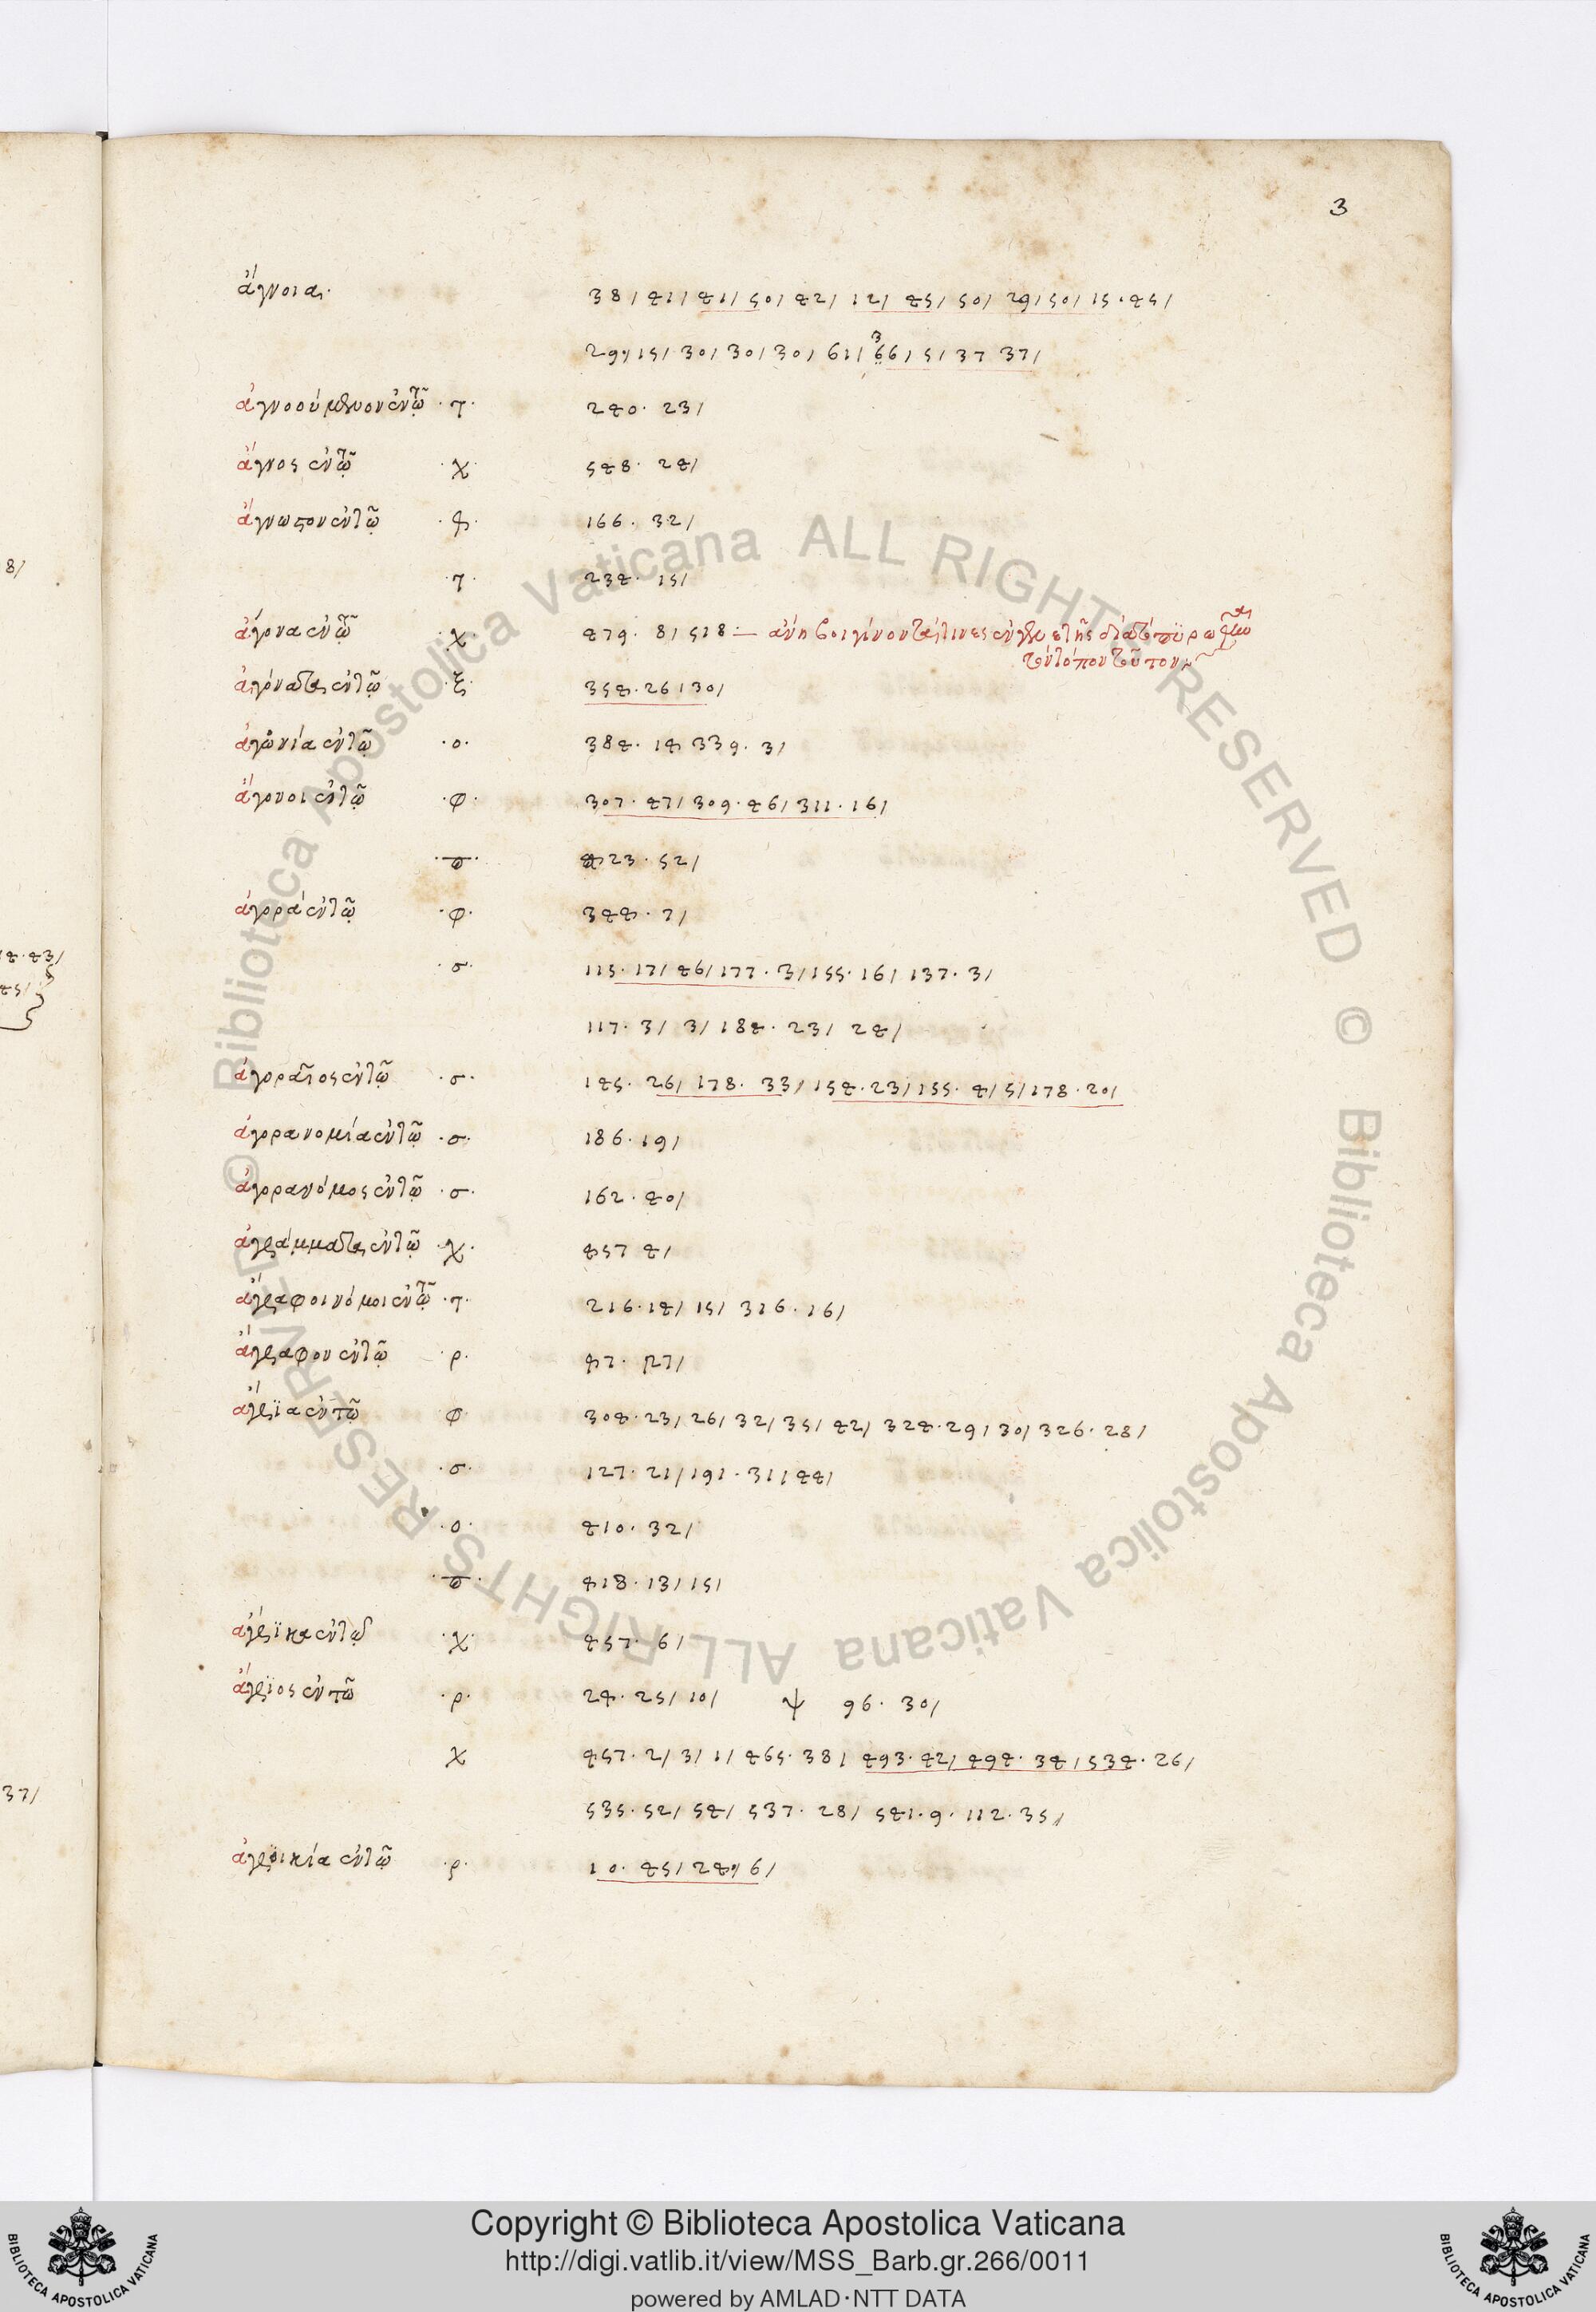 3
ἄγνοια· 38/ 41/ 41/ 50/ 42/ 12/ 45/ 50/ 29/ 50/ 15· 45/
29/ 15/ 30/ 30/ 30/ 61/ 66/ 5/ 37 37/
ἀγνοούμενον ἐν τῷ ·τ· 240· 23/
ἄγνος ἐν τῷ ·χ· 548· 24/
ἄγνωστον ἐν τῷ 166· 32/
·τ· 234· 15/
ἄγονα ἐν τῷ ·χ· 479· 8/ 518·
τὸν τόπον τοῦτον
ἀγόνατα ἐν τῷ ·ξ· 354· 26/ 30/
ἀγωνία ἐν τῷ ·ο· 384· 14 339· 3/
ἄγονοι ἐν τῷ ·φ· 307· 47/ 309· 46/ 311· 16/
423· 52/
ἀγορά ἐν τῷ ·φ· 344· 7/
·σ· 115· 17/ 46/ 177· 3/ 155· 16/ 137· 3/
117· 3/ 3/ 184· 23/ 24/
ἀγοραῖος ἐν τῷ ·σ· 145· 26/ 178· 33/ 154· 23/ 155· 4/ 5/ 178· 20/
ἀγορανομία ἐν τῷ ·σ· 186· 19/
ἀγορανόμος ἐν τῷ ·σ· 162· 40/
ἀγράμματα ἐν τῷ ·χ· 457 4/
ἄγραφοι νόμοι ἐν τῷ ·τ· 216· 14/ 15/ 316· 16/
ἄγραφον ἐν τῷ ·ρ· 47·
ἄγρια ἐν τῷ φ· 304· 23/ 26/ 32/ 35/ 42/ 324· 29/ 30/ 326· 28/
·σ· 127· 21/ 191· 31/ 44/
·ο· 410· 32/
418· 13/ 15/
ἄγρικα ἐν τῷ ·χ· 457· 6/
ἄγριος ἐν τῷ ·ρ· 24· 25/ 10/ ψ 96· 30/
χ 457· 2/ 3/ 1/ 465· 38/ 493· 42/ 494· 34/ 534· 26/
535· 52/ 54/ 537· 28/ 541· 9· 112· 35/
ἀγροικία ἐν τῷ ·ρ· 10· 45/ 24/ 6/
8/
37/
© Biblioteca Apostolica Vaticana ALL RIGHTS RESERVED © Biblioteca Apostolica Vaticana ALL RIGHTS RESERVED
Copyright © Biblioteca Apostolica Vaticana
http://digi.vatlib.it/view/MSS_Barb.gr.266/0011
powered by AMLAD·NTT DATA
BIBLIOTECA APOSTOLICA VATICANA
BIBLIOTECA APOSTOLICA VATICANA